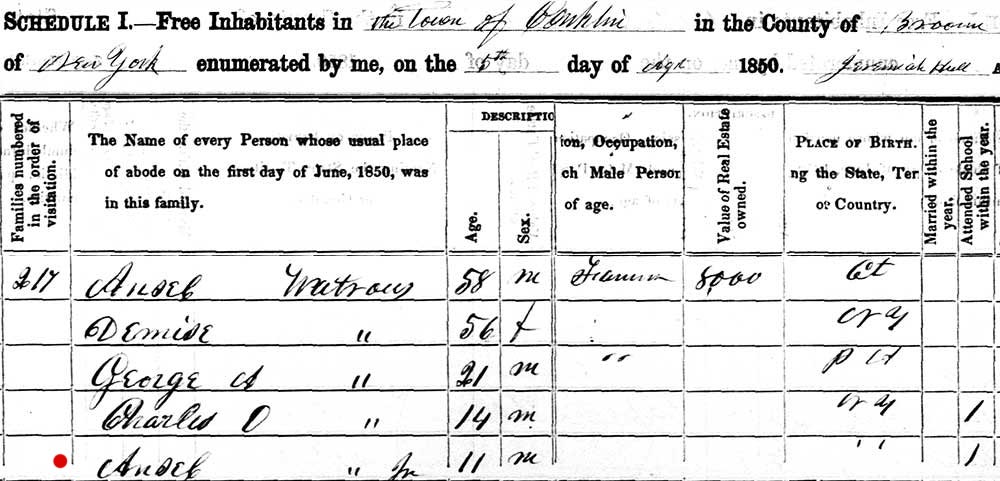 SCHEDULE I.—Free Inhabitants in the Town of Conklin in the County of Broome
of New York enumerated by me, on the day of Sept 1850. Jeremiah Hull A
Families numbered in the order of visitation.
The Name of every Person whose usual place
of abode on the first day of June, 1850, was
in this family.
DESCRIPTIO
Age.
Sex.
ion, Occupation,
ch Male Person
of age.
Value of Real Estate owned.
PLACE OF BIRTH.
ng the State, Ter
or Country.
Married within the year,
Attended School within the year.
217 Ansel Watrous 58 m Farmer 8,000 Ct
Demise " 56 f N Y
George A " 21 m " "
Charles O " 14 m N Y 1
Ansel " Jr 11 m " " 1